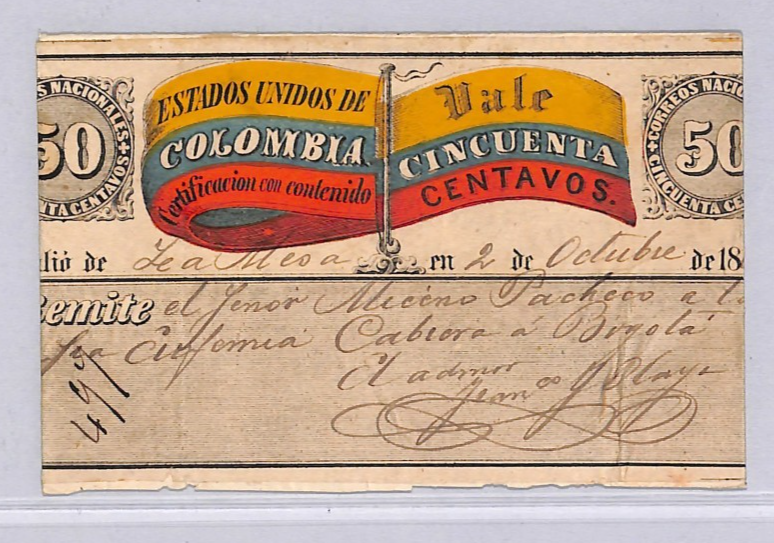 S NACIONALES
50
TA CENTAVOS
ESTADOS UNIDOS DE
COLOMBIA
Certificacion con contenido
Vale
CINCUENTA
CENTAVOS.
CORREOS NACIO
50
CINCUENTA CE
lió de La Mesa en 2 de Octubre de 18
Remite el Señor Miceno Pacheco a l
Sra Eufemia Cabrera á Bogotá
El admor
497